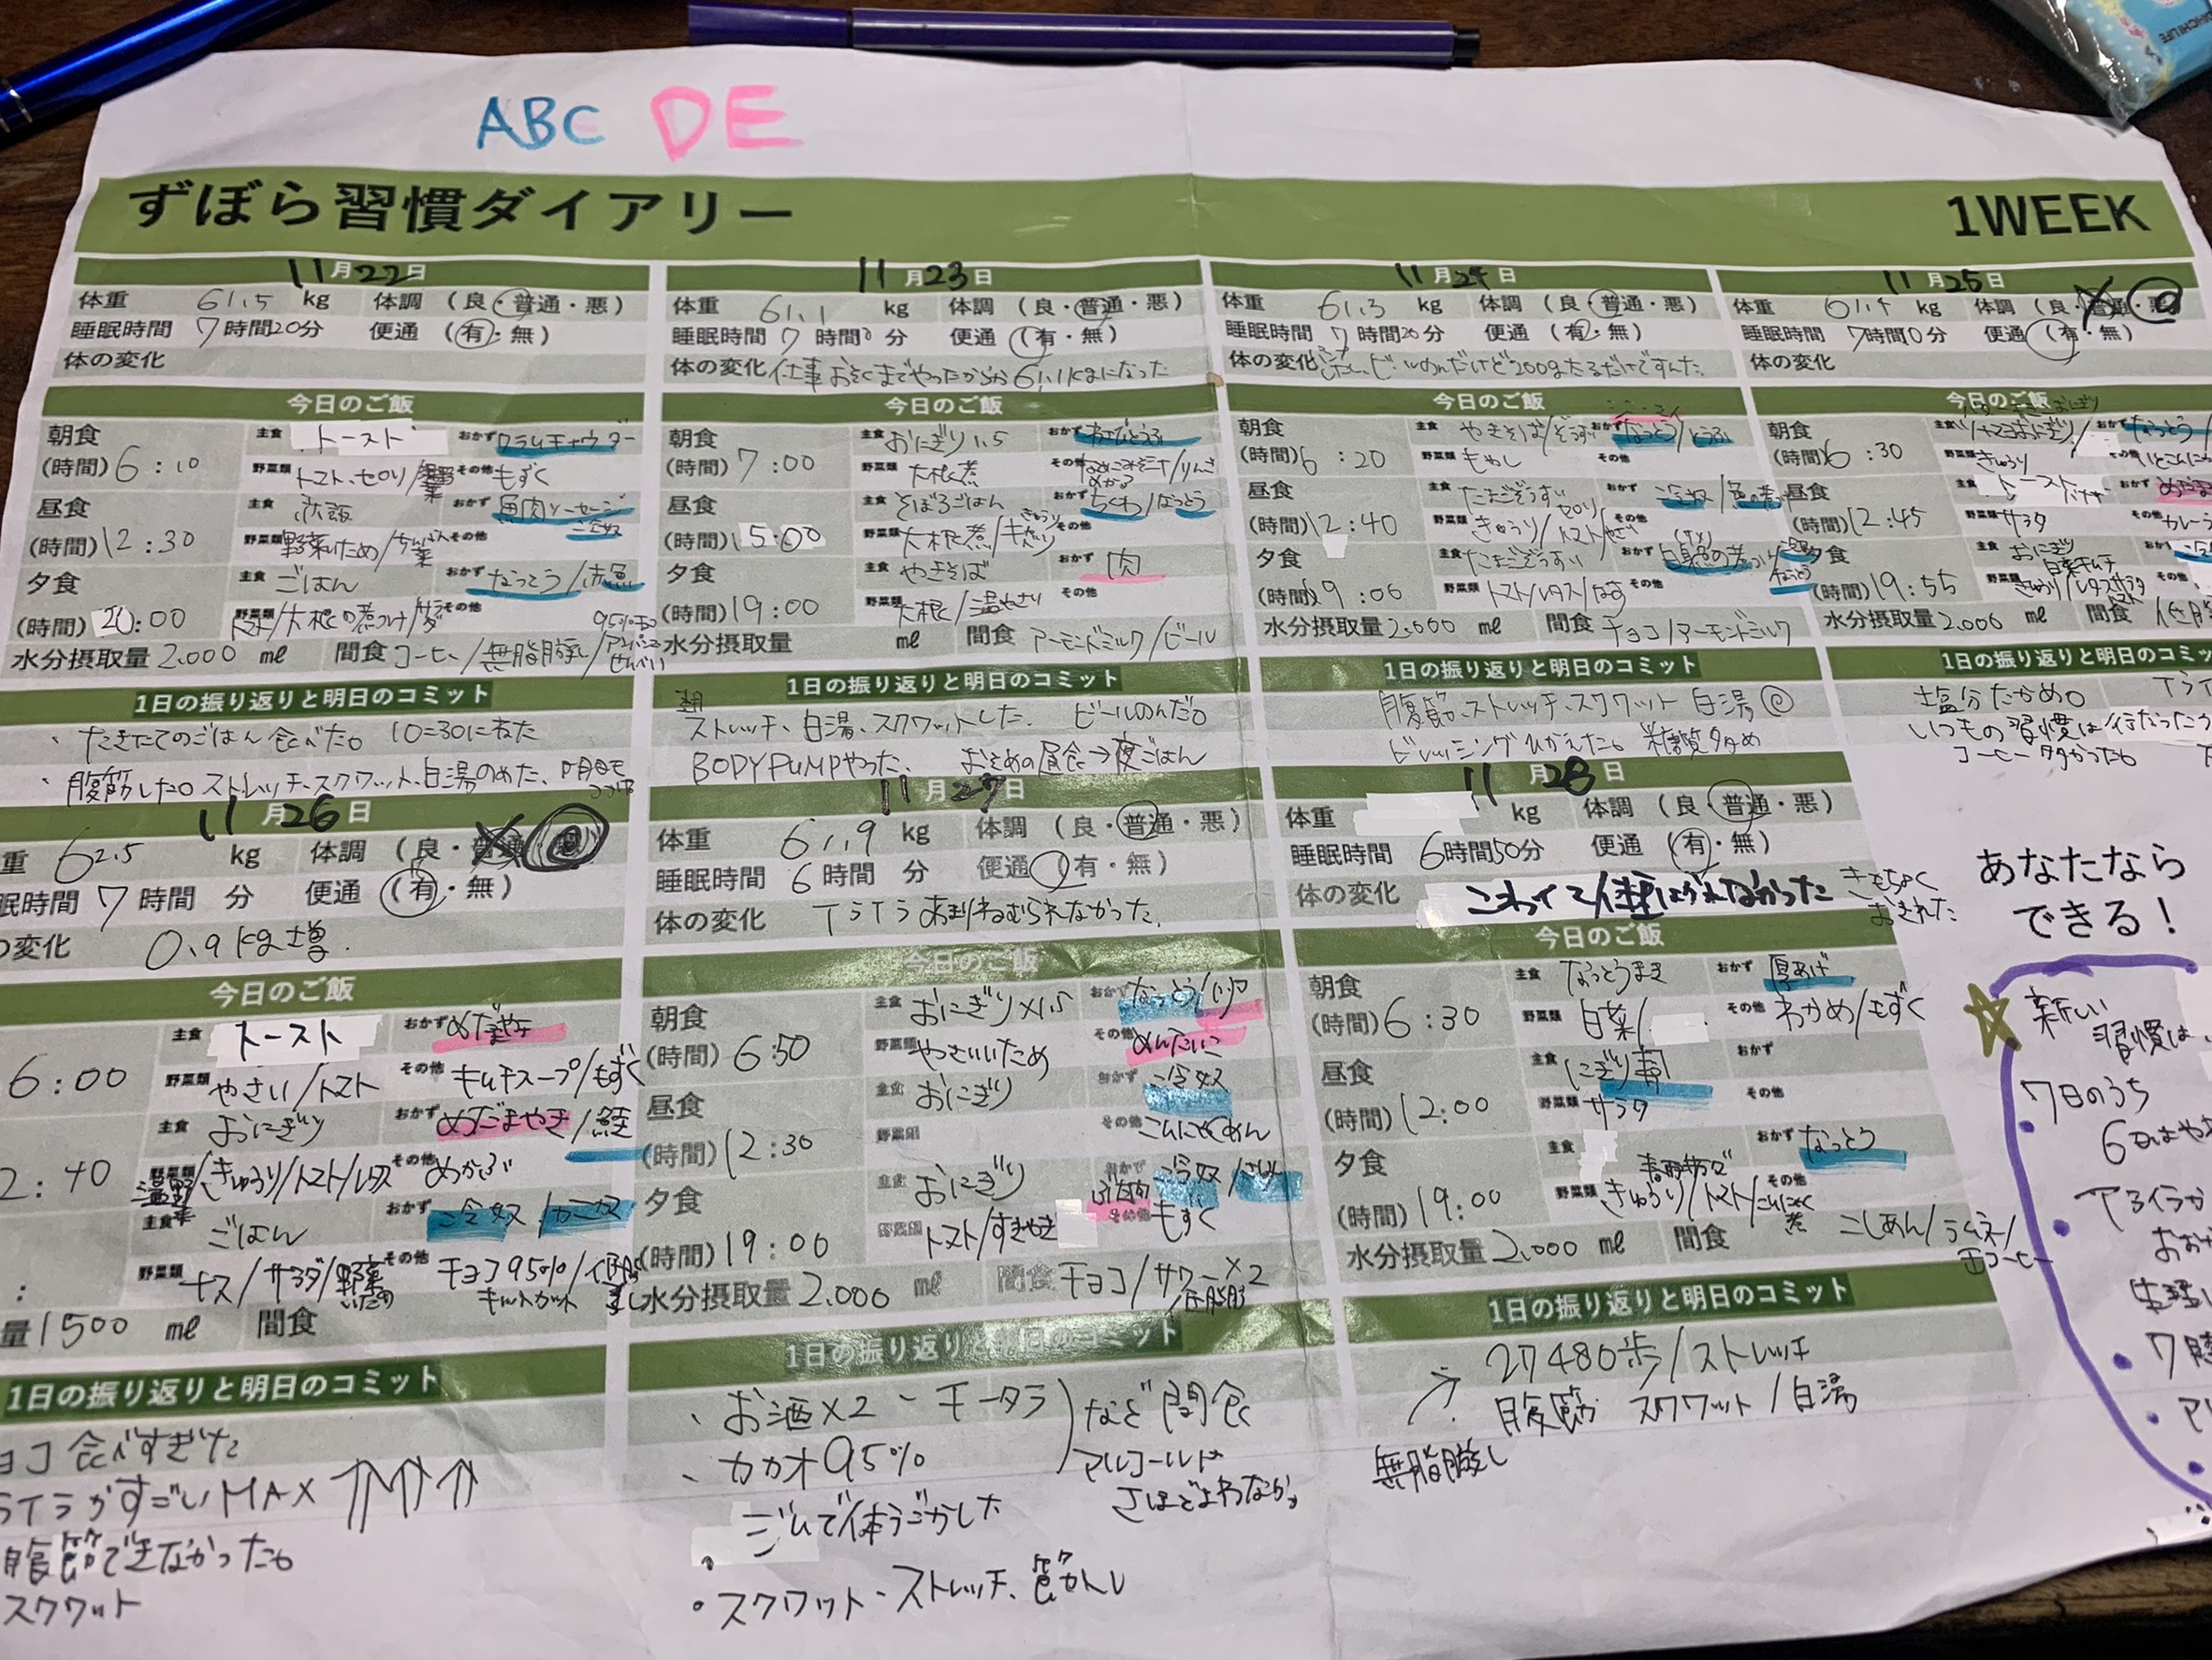 ABC DE
ずぼら習慣ダイアリー 1WEEK
11月22日
体重 61.5 kg 体調 (良・普通・悪)
睡眠時間 7時間20分 便通 (有・無)
体の変化
今日のご飯
朝食 主食 トースト おかず クラムチャウダー
(時間) 6:10 野菜類 トマト、セロリ/ その他 もずく
昼食 主食 赤飯 おかず 魚肉ソーセージ
冷奴
(時間) 12:30 野菜類 野菜いため/ その他
夕食 主食 ごはん おかず なっとう/赤魚
(時間) 20:00 野菜類 /大根の煮つけ/ その他
水分摂取量 2.000 ml 間食 コーヒー/無脂肪
せんべい
1日の振り返りと明日のコミット
、たきたてのごはん食べた。 10:30にねた
・腹筋した。ストレッチ、スクワット、白湯のめた、明日も
11月23日
体重 61.1 kg 体調 (良・普通・悪)
睡眠時間 7時間0分 便通 (有・無)
体の変化 仕事おそくまでやったからか61.1kgになった
今日のご飯
朝食 主食 おにぎり1.5 おかず
(時間) 7:00 野菜類 大根煮 その他 /りんご
めかぶ
昼食 主食 そぼろごはん おかず ちくわ/なっとう
(時間) 15:00 野菜類 大根煮/ きゅうり その他
夕食 主食 やきそば おかず 肉
(時間) 19:00 野菜類 大根/温やさい その他
水分摂取量 ml 間食 アーモンドミルク/ビール
1日の振り返りと明日のコミット
朝
ストレッチ、白湯、スクワットした. ビールのんだ。
BODYPUMPやった、 おそめの昼食→夜ごはん
11月24日
体重 61.3 kg 体調 (良・普通・悪)
睡眠時間 7時間20分 便通 (有・無)
体の変化 ビールのんだけど200gたるだけですんだ.
今日のご飯
朝食 主食 やきそば/ おかず なっとう/とうふ
(時間) 6:20 野菜類 もやし その他
昼食 主食 たまごぞうすい おかず 冷奴/魚の煮
(時間) 12:40 野菜類 きゅうり/トマト/ セロリ その他
夕食 主食 たまごぞうすい おかず 白身魚の煮つけ/冷奴
なっとう
(時間) 19:06 野菜類 トマト/レタス/なす その他
水分摂取量 2.000 ml 間食 チョコ/アーモンドミルク
1日の振り返りと明日のコミット
腹筋、ストレッチ、スクワット 白湯
ドレッシングひかえた。 糖質多め
11月25日
体重 kg 体調 (良・普通・悪)
睡眠時間 7時間0分 便通 (有・無)
体の変化
今日のご飯
朝食 主食 おにぎり/ おかず なっとう/
(時間) 6:30 野菜類 きゅうり その他
昼食 主食 トースト バナナ おかず めだま
(時間) 12:45 野菜類 サラダ その他 カレー
夕食 主食 おにぎり おかず
白菜キムチ
(時間) 19:55 野菜類 きゅうり/レタスサラダ その他
トマト
水分摂取量 2.006 ml 間食 低脂
1日の振り返りと明日のコミッ
塩分たかめ。 イライ
いつもの習慣は行だった
コーヒー多かったも
11月26日
重 62.5 kg 体調 (良・普通
眠時間 7時間 分 便通 (有・無)
の変化 0.9kg増.
今日のご飯
主食 トースト おかず めだまやき
6:00 野菜類 やさい/トマト その他 キムチスープ/もずく
主食 おにぎり おかず めだまやき/鮭
2:40 野菜類 温野菜/きゅうり/トマト/レタス その他 めかぶ
主食 ごはん おかず 冷奴/かつお
: 野菜類 ナス/サラダ/野菜いため その他 チョコ95%/低脂
キットカット
量 1500 ml 間食
1日の振り返りと明日のコミット
ョコ食べすぎた
ライラがすごいMAX ↑↑↑
腹筋できなかったも
スクワット
11月27日
体重 61.9 kg 体調 (良・普通・悪)
睡眠時間 6時間 分 便通 (有・無)
体の変化 イライラあまりねむられなかった.
今日のご飯
朝食 主食 おにぎり×1.5 おかず なっとう/
(時間) 6:50 野菜類 やさいいため その他 めんたいこ
昼食 主食 おにぎり おかず 冷奴
(時間) 12:30 野菜類 その他 こんにゃくめん
夕食 主食 おにぎり おかず 冷奴/さしみ
豚肉
(時間) 19:00 野菜類 トマト/すきやき その他 もずく
水分摂取量 2.000 ml 間食 チョコ/サワー×2
/低脂肪
1日の振り返りと明日のコミット
、お酒×2、チータラ
、カカオ95% など間食
アルコールは
さほどよわなか
ジムで体うごかした
・スクワット、ストレッチ、筋トレ
11月28日
体重 kg 体調 (良・普通・悪)
睡眠時間 6時間50分 便通 (有・無)
体の変化 こわくて体重はかれなかった きもちよく
おきれた
今日のご飯
朝食 主食 なっとうまき おかず 厚あげ
(時間) 6:30 野菜類 白菜/ その他 わかめ/もずく
昼食 主食 にぎり寿司 おかず
(時間) 12:00 野菜類 サラダ その他
夕食 主食 おかず なっとう
春雨サラダ
(時間) 19:00 野菜類 きゅうり/トマト/こんにゃく煮 その他
水分摂取量 2.000 ml 間食 こしあん/ラムネ/
缶コーヒー
1日の振り返りと明日のコミット
27480歩/ストレッチ
腹筋 スクワット/白湯
無脂肪
あなたなら
できる！
新しい
習慣は、
7日のうち
6日はや
イライラか
おお
体